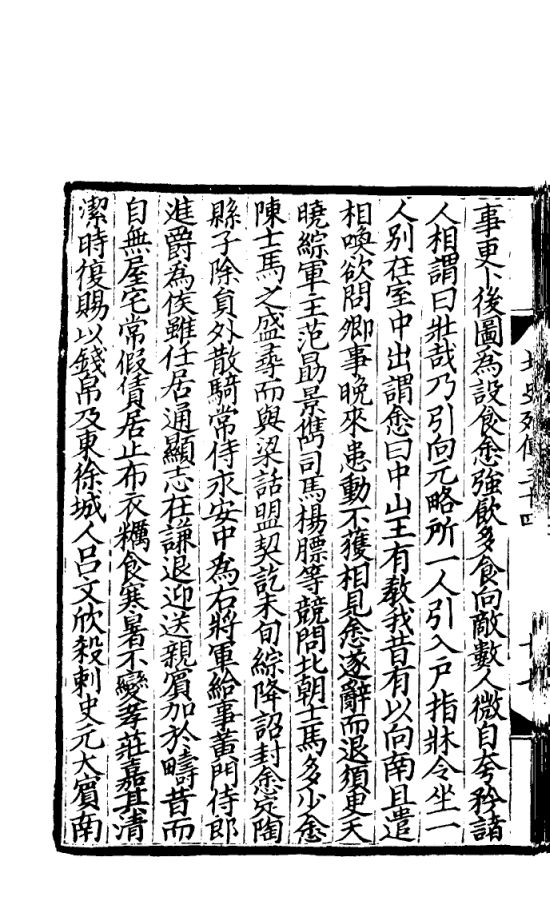 事更卜後圖為設食悆強飲多食向敵數人微自夸矜諸
人相謂曰壯哉乃引向元略所一人引入戶指牀令坐一
人別在室中出謂悆曰中山王有教我昔有以向南且遣
相喚欲問卿事晚來患動不獲相見悆遂辭而退須更天
曉綜軍主范勗景儁司馬楊𣄃等競問北朝士馬多少悆
陳士馬之盛尋而與梁話盟契訖未旬綜降詔封悆定陶
縣子除員外散騎常侍永安中為右將軍給事黃門侍郎
進爵為侯雖任居通顯志在謙退迎送親賓加於疇昔而
自無屋宅常假債居止布衣糲食寒暑不變孝莊嘉其清
潔時復賜以錢帛及東徐城人吕文欣殺刺史元大賓南